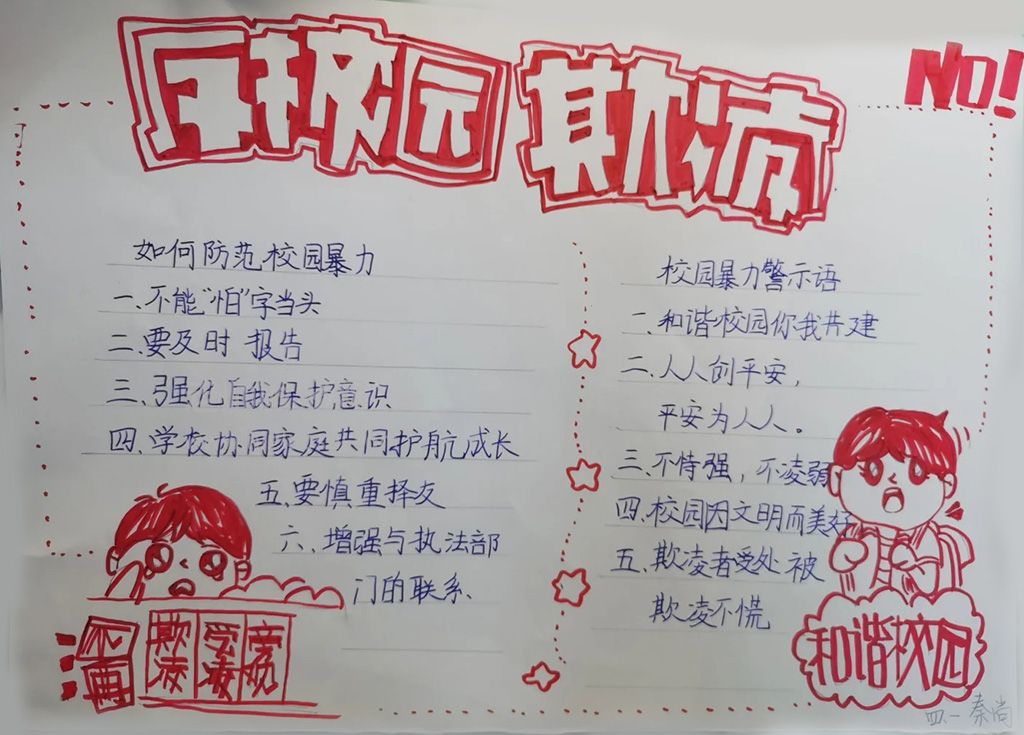 反校园 欺凌
NO!
如何防范校园暴力
一、不能“怕”字当头
二、要及时 报告
三、强化自我保护意识
四、学校协同家庭共同护航成长
五、要慎重择友
六、增强与执法部
门的联系、
不再
欺凌
受凌
旁观
校园暴力警示语
一、和谐校园你我共建
二、人人创平安，
平安为人人。
三、不恃强，不凌弱
四、校园因文明而美好
五、欺凌者受处 被
欺凌不慌
和谐校园
四、一 秦尚